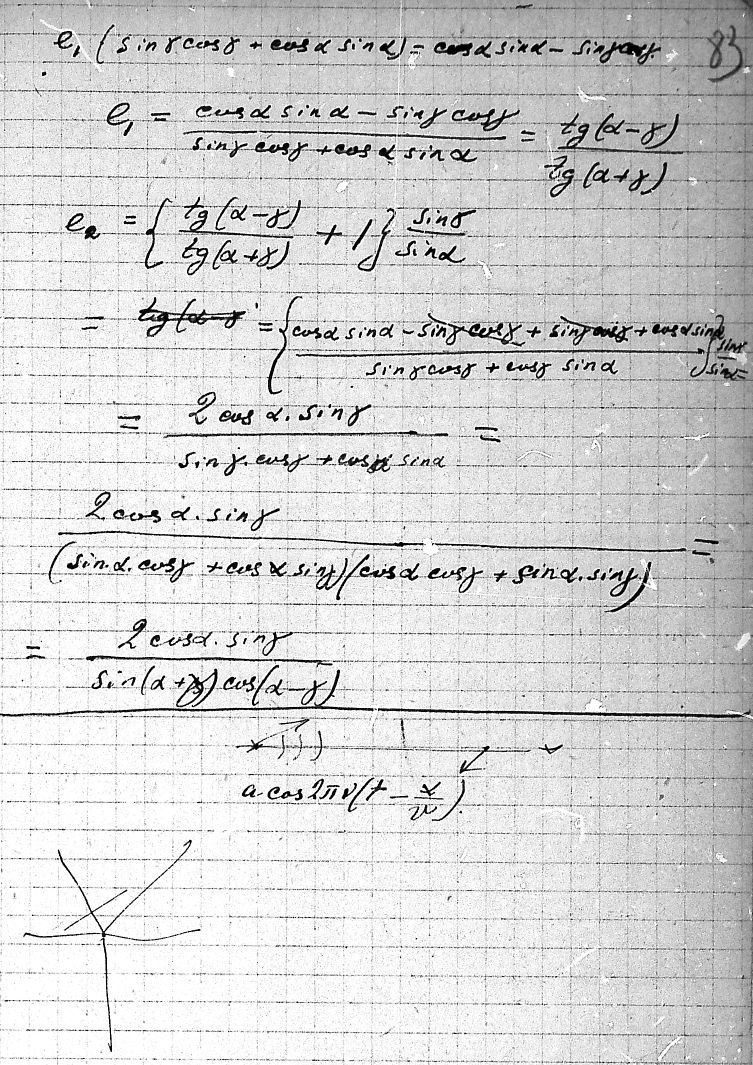 83
e₁ (sinγ cosγ + cosα sinα) = cosα sinα − sinγ cosγ.
e₁ = (cosα sinα − sinγ cosγ) / (sinγ cosγ + cosα sinα) = tg(α−γ) / tg(α+γ)
e₂ = { tg(α−γ) / tg(α+γ) + 1 } sinγ / sinα
= tg(α−γ = { (cosα sinα − sinγ cosγ + sinγ cosγ + cosα sinα) / (sinγ cosγ + cosγ sinα) } sinγ / sinα =
= 2 cosα. sinγ / (sinγ. cosγ + cosα sinα) =
2 cosα. sinγ / (sin.α. cosγ + cosα sinγ)(cosα cosγ + sinα. sinγ) =
= 2 cosα. sinγ / sin(α+γ) cos(α−γ)
a cos 2πν(t − x/v).